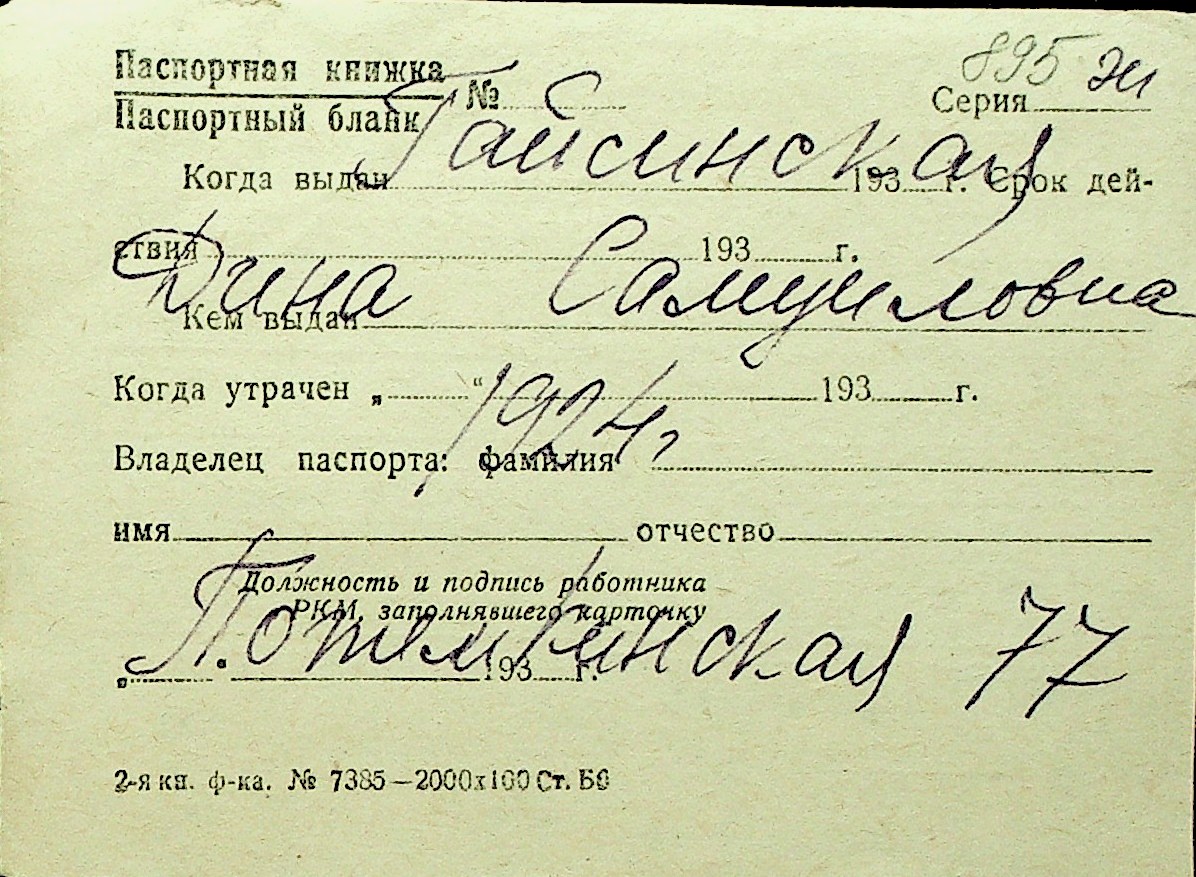 895 эт
Паспортная книжка
Паспортный бланк № Серия
Гайсинская
Когда выдан 193 г. Срок дей-
ствия 193 г.
Дина Самуиловна
Кем выдан
Когда утрачен „ “ 193 г.
1924 г
Владелец паспорта: фамилия
имя отчество
Должность и подпись работника
РКМ, заполнявшего карточку
Потемкинская 77
„ 193 г.
2-я кн. ф-ка. № 7385—2000х100 Ст. Б9